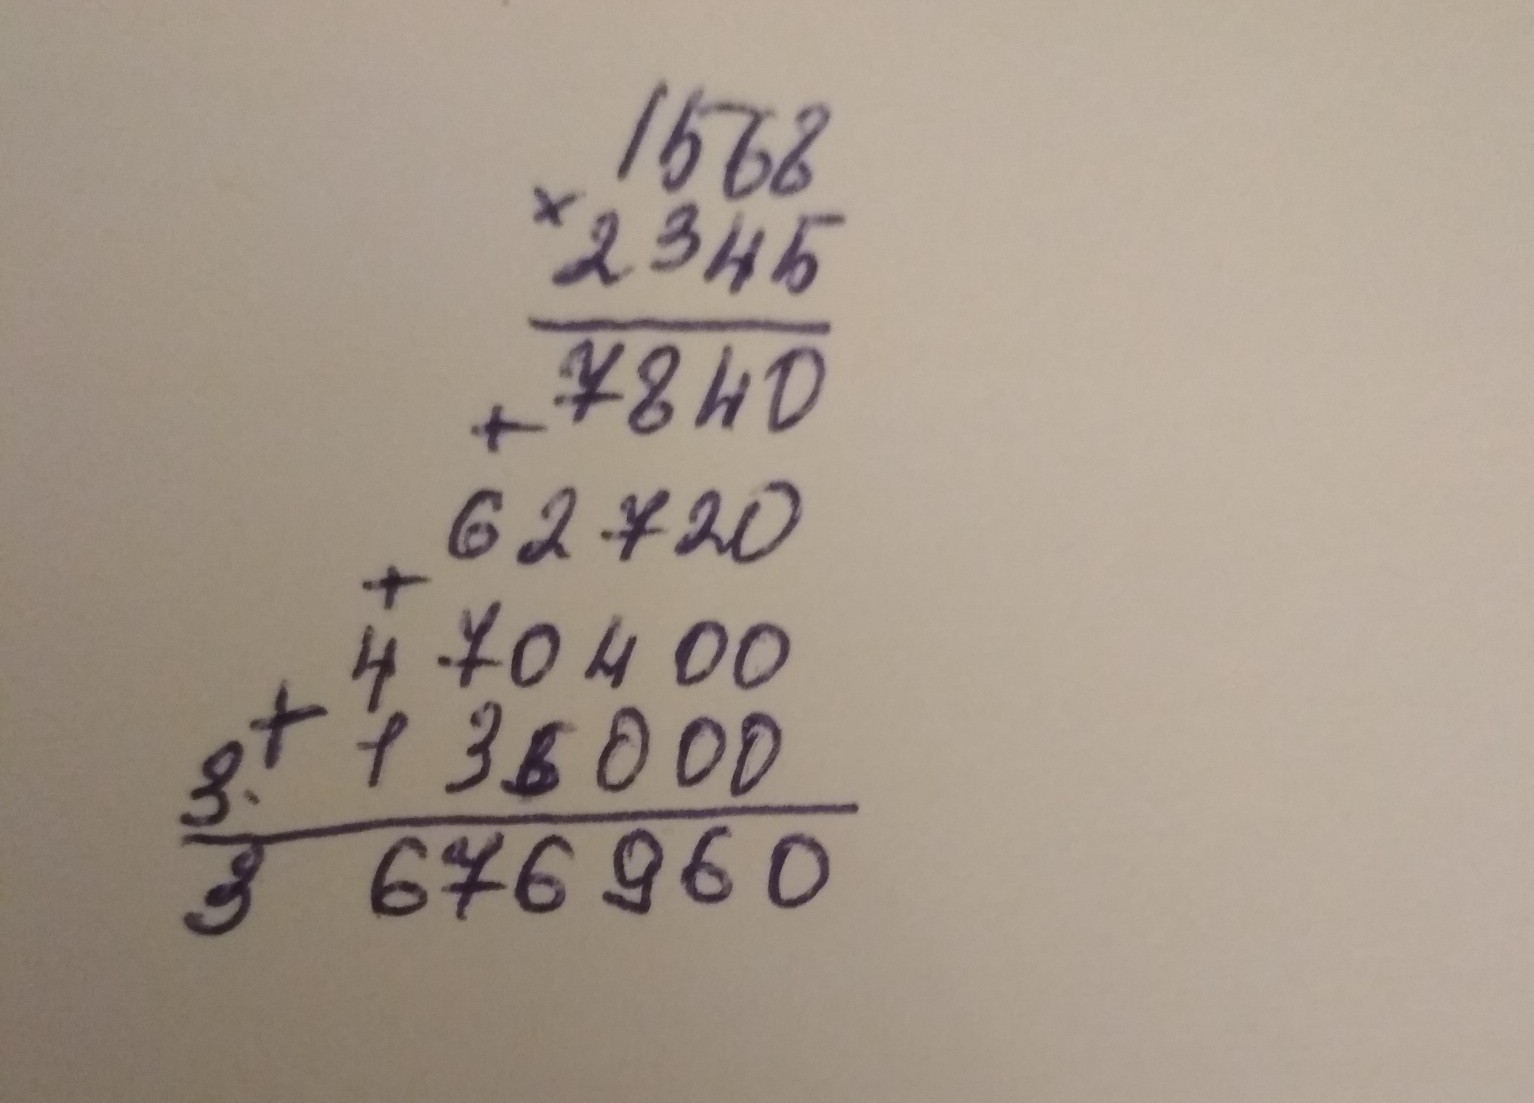 1568
× 2345
7840
+
62720
+
470400
+
3. 136000
3 676960